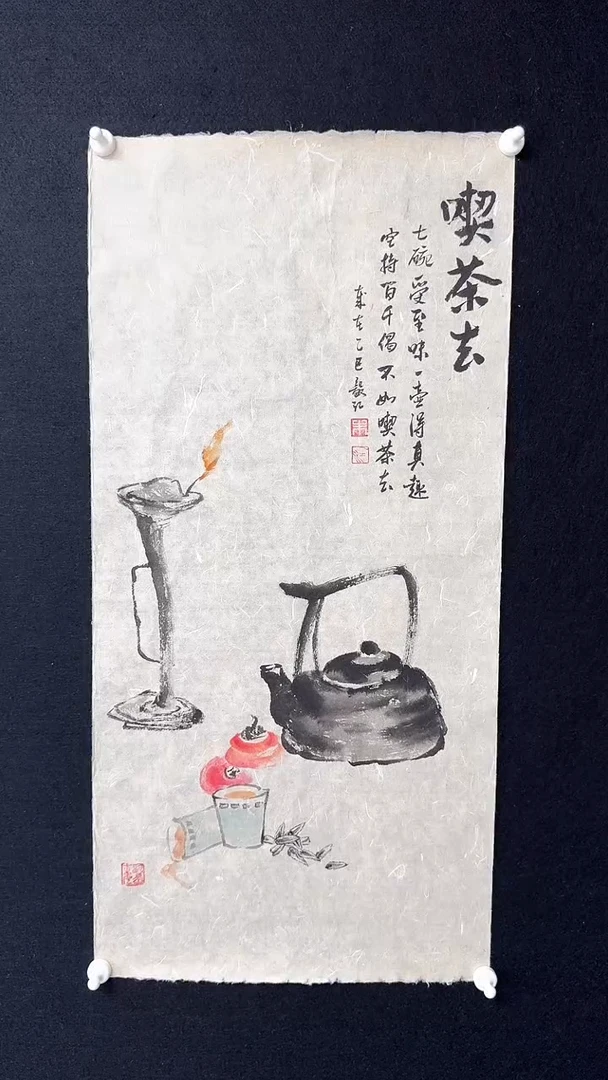 喫茶去
七碗受至味一壶得真趣
空持百千偈不如喫茶去
歲在乙巳